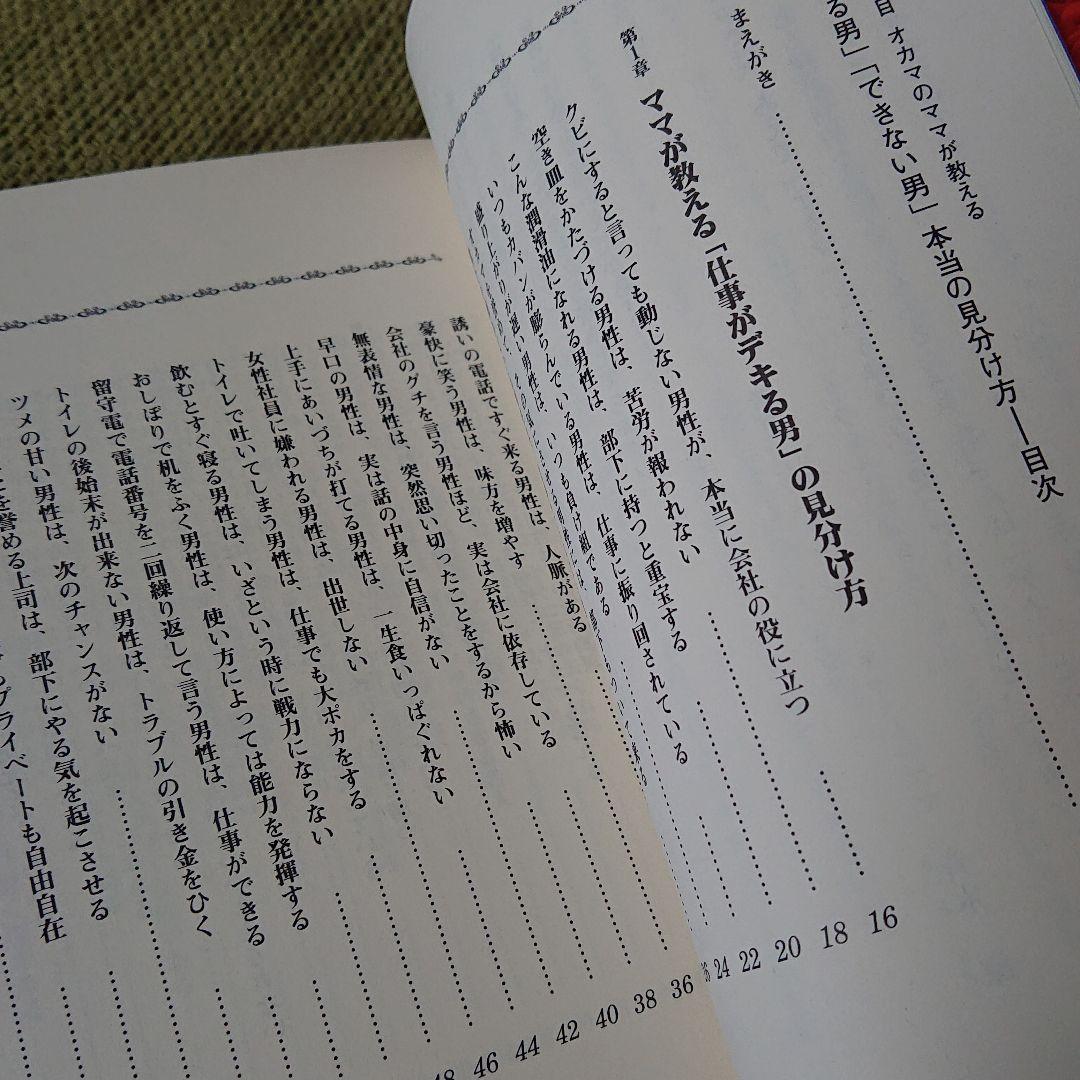 オカマのママが教える
る男」「できない男」本当の見分け方―目次
まえがき
第1章 ママが教える「仕事がデキる男」の見分け方
クビにすると言っても動じない男性が、本当に会社の役に立つ
空き皿をかたづける男性は、苦労が報われない
こんな潤滑油になれる男性は、部下に持つと重宝する
いつもカバンが膨らんでいる男性は、仕事に振り回されている
盛り上がりが遅い男性は、いつも負け組である
16
18
20
22
24
誘いの電話ですぐ来る男性は、人脈がある
豪快に笑う男性は、味方を増やす
会社のグチを言う男性ほど、実は会社に依存している
無表情な男性は、突然思い切ったことをするから怖い
早口の男性は、実は話の中身に自信がない
上手にあいづちが打てる男性は、一生食いっぱぐれない
女性社員に嫌われる男性は、出世しない
トイレで吐いてしまう男性は、仕事でも大ポカをする
飲むとすぐ寝る男性は、いざという時に戦力にならない
おしぼりで机をふく男性は、使い方によっては能力を発揮する
留守電で電話番号を二回繰り返して言う男性は、仕事ができる
トイレの後始末が出来ない男性は、トラブルの引き金をひく
ツメの甘い男性は、次のチャンスがない
を誉める上司は、部下にやる気を起こさせる
プライベートも自由自在
36
38
40
42
44
46
48